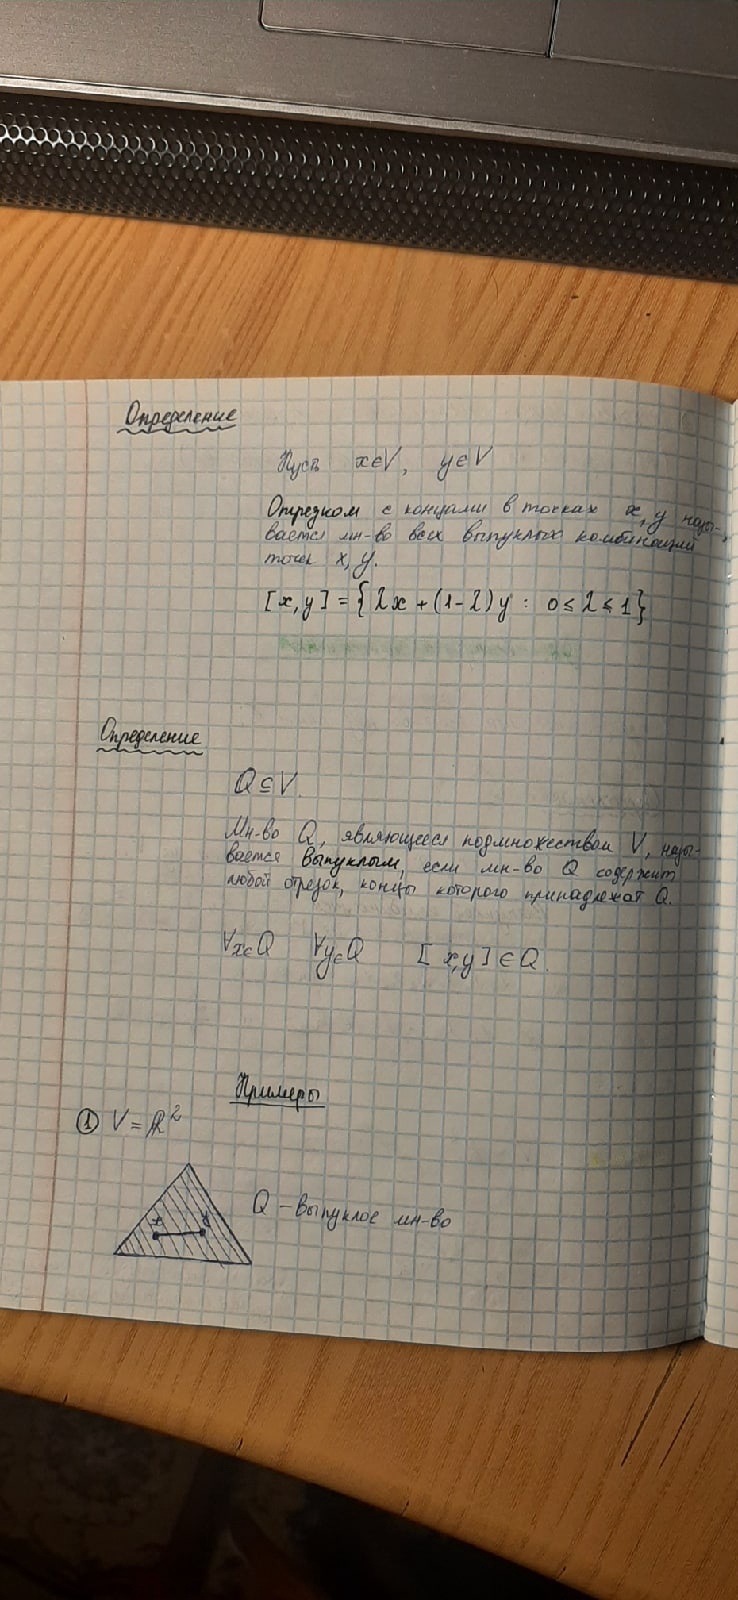 Определение
Пусть x∈V, y∈V
Отрезком с концами в точках x, y назы-
вается мн-во всех выпуклых комбинаций
точек x, y.
[x,y] = {λx + (1-λ)y : 0 ≤ λ ≤ 1}
Определение
Q ⊆ V.
Мн-во Q, являющееся подмножеством V, назы-
вается выпуклым, если мн-во Q содержит
любой отрезок, концы которого принадлежат Q.
∀x∈Q ∀y∈Q [x,y] ∈ Q.
Примеры
① V = ℝ²
x
Q – выпуклое мн-во